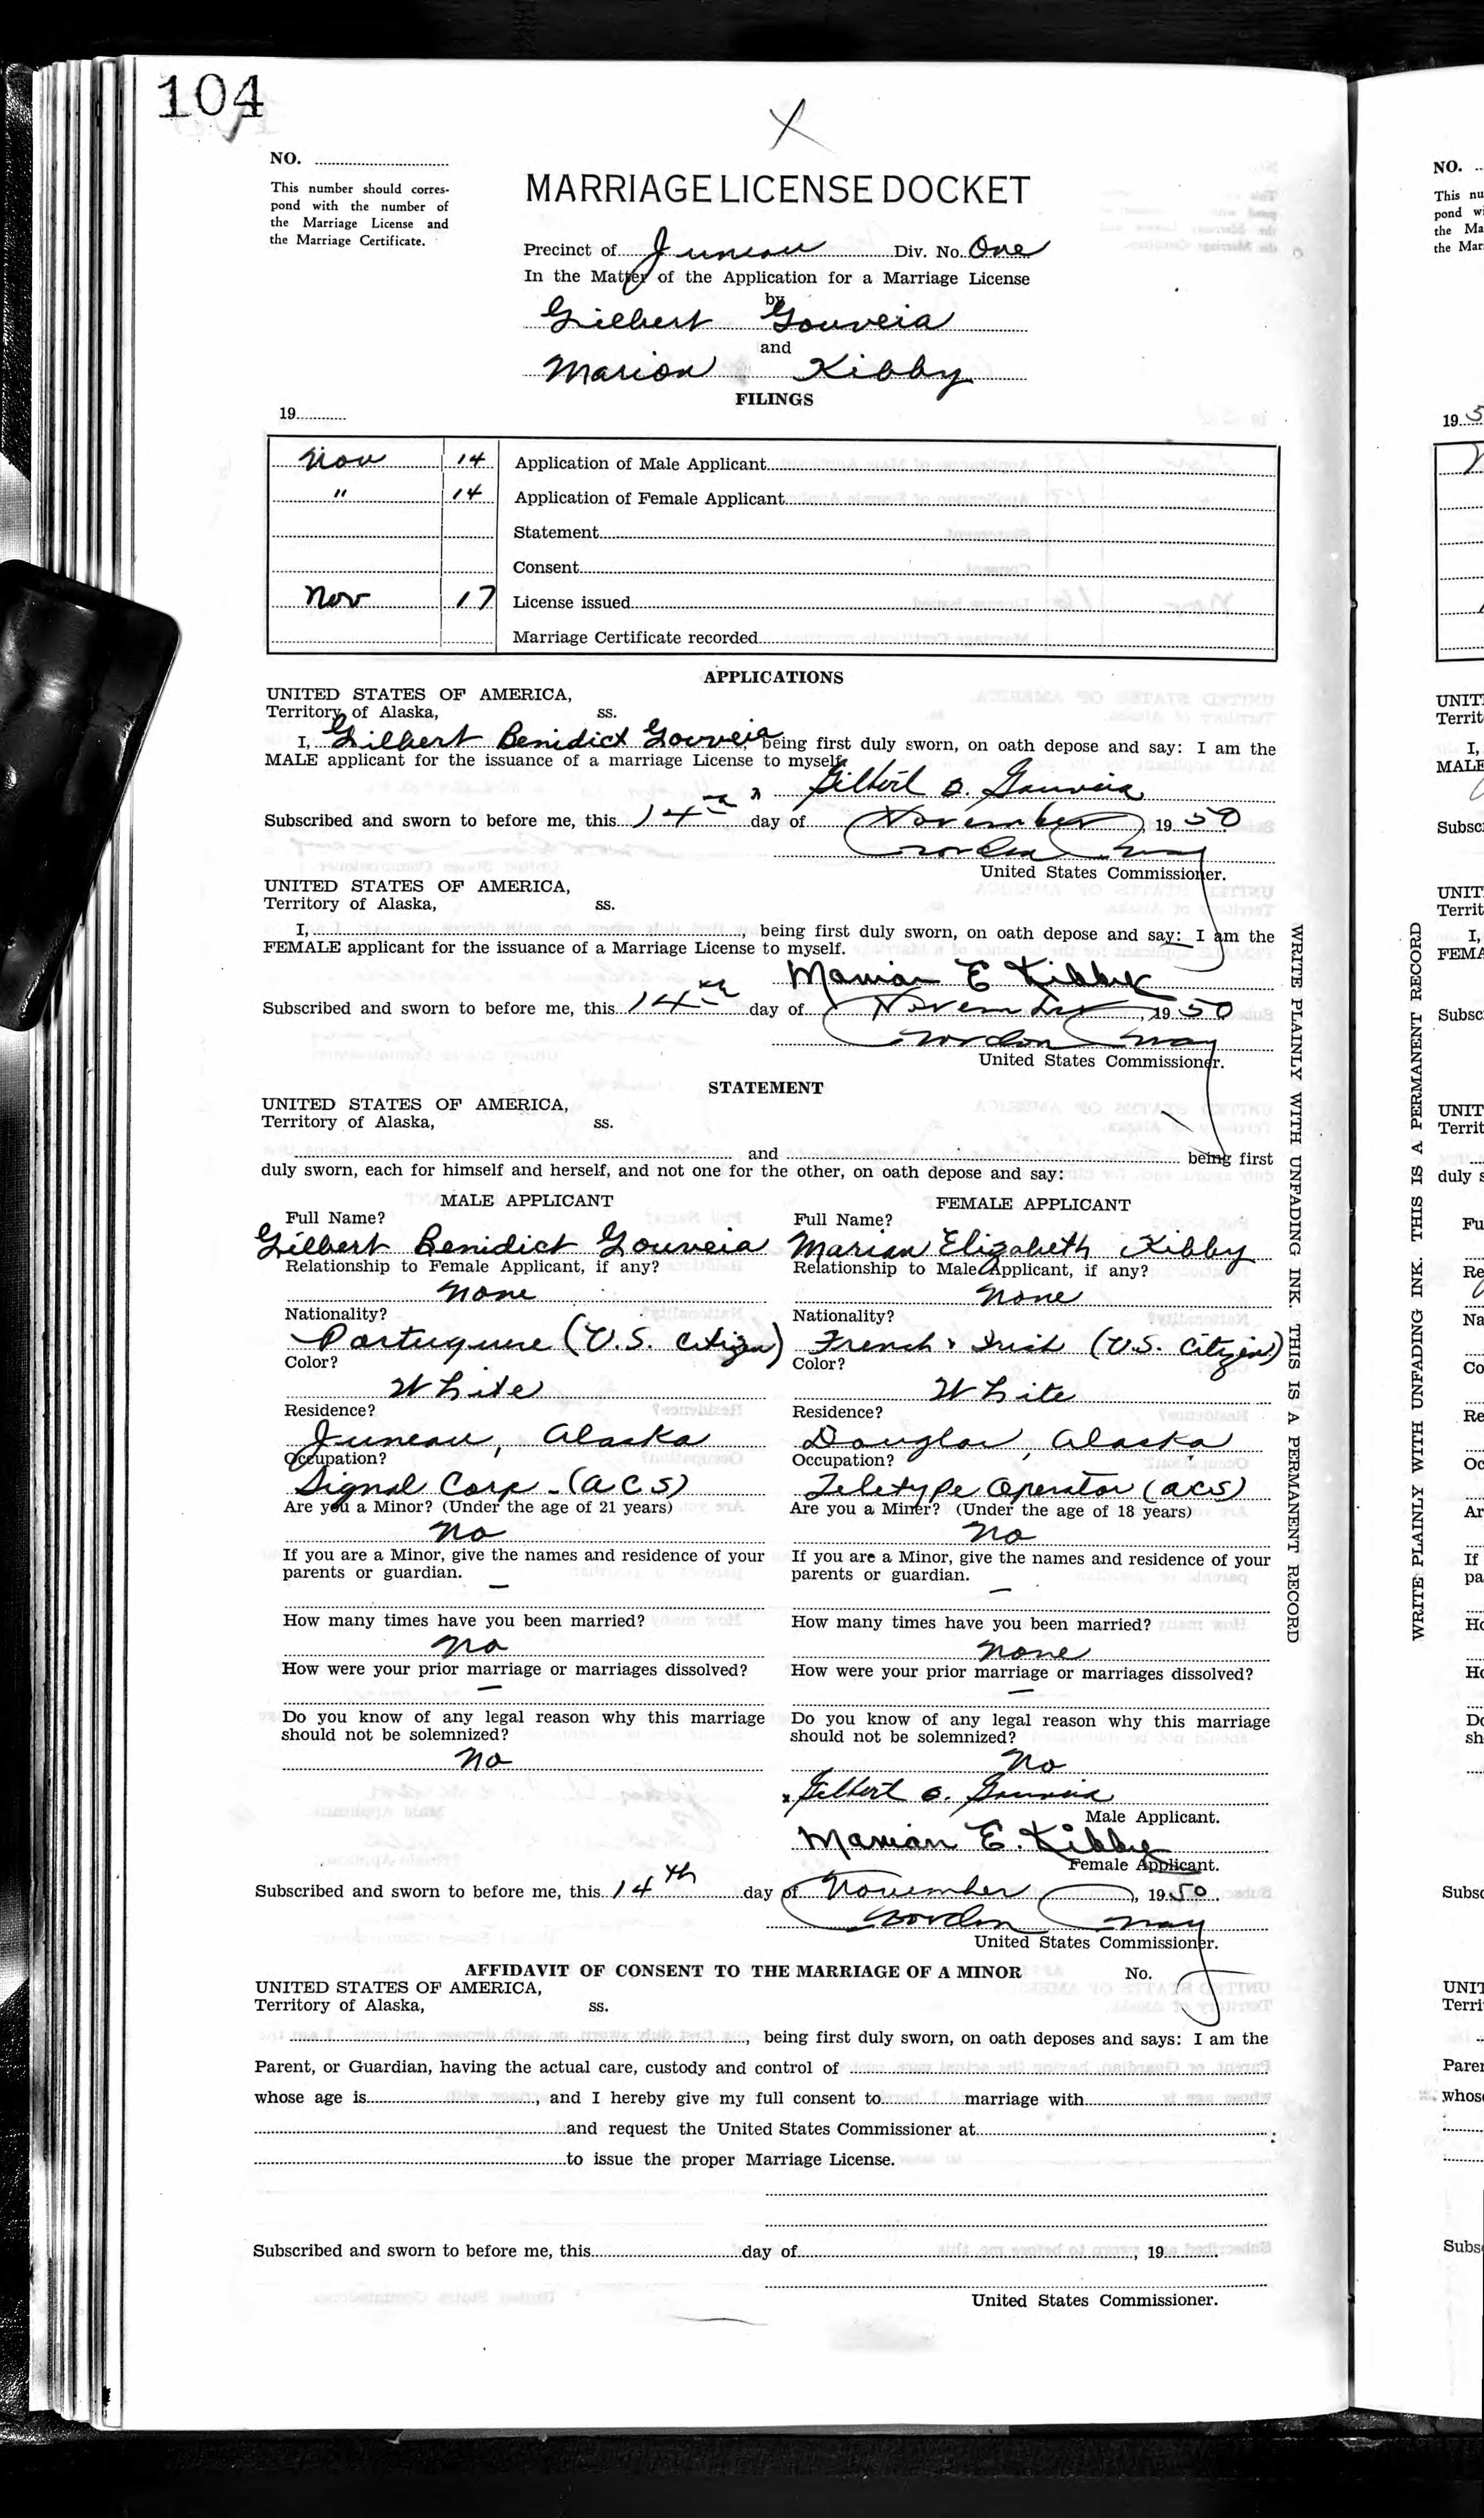 104
NO.
This number should corres-
pond with the number of
the Marriage License and
the Marriage Certificate.
MARRIAGE LICENSE DOCKET
Precinct of Juneau Div. No. One
In the Matter of the Application for a Marriage License
by
Gilbert Gouveia
and
Marion Kibby
FILINGS
19
Nov 14 Application of Male Applicant
" 14 Application of Female Applicant
Statement
Consent
Nov 17 License issued
Marriage Certificate recorded
APPLICATIONS
UNITED STATES OF AMERICA,
Territory of Alaska, ss.
I, Gilbert Benidict Gouveia, being first duly sworn, on oath depose and say: I am the
MALE applicant for the issuance of a marriage License to myself.
x Gilbert B. Gouveia
Subscribed and sworn to before me, this 14th day of November, 1950
Gordon Gray
United States Commissioner.
UNITED STATES OF AMERICA,
Territory of Alaska, ss.
I, , being first duly sworn, on oath depose and say: I am the
FEMALE applicant for the issuance of a Marriage License to myself.
Marian E Kibby
Subscribed and sworn to before me, this 14th day of November, 1950
Gordon Gray
United States Commissioner.
STATEMENT
UNITED STATES OF AMERICA,
Territory of Alaska, ss.
and being first
duly sworn, each for himself and herself, and not one for the other, on oath depose and say:
MALE APPLICANT FEMALE APPLICANT
Full Name? Full Name?
Gilbert Benidict Gouveia Marian Elizabeth Kibby
Relationship to Female Applicant, if any? Relationship to Male Applicant, if any?
none none
Nationality? Nationality?
Portuguese (U.S. Citizen) French & Irish (U.S. Citizen)
Color? Color?
White White
Residence? Residence?
Juneau, Alaska Douglas, Alaska
Occupation? Occupation?
Signal Corp - (ACS) Teletype Operator (ACS)
Are you a Minor? (Under the age of 21 years) Are you a Miner? (Under the age of 18 years)
No No
If you are a Minor, give the names and residence of your If you are a Minor, give the names and residence of your
parents or guardian. parents or guardian.
— —
How many times have you been married? How many times have you been married?
No none
How were your prior marriage or marriages dissolved? How were your prior marriage or marriages dissolved?
— —
Do you know of any legal reason why this marriage Do you know of any legal reason why this marriage
should not be solemnized? should not be solemnized?
No No
x Gilbert B. Gouveia
Male Applicant.
Marian E. Kibby
Female Applicant.
Subscribed and sworn to before me, this 14th day of November, 1950.
Gordon Gray
United States Commissioner.
AFFIDAVIT OF CONSENT TO THE MARRIAGE OF A MINOR No.
UNITED STATES OF AMERICA,
Territory of Alaska, ss.
, being first duly sworn, on oath deposes and says: I am the
Parent, or Guardian, having the actual care, custody and control of
whose age is , and I hereby give my full consent to marriage with
and request the United States Commissioner at
to issue the proper Marriage License.
Subscribed and sworn to before me, this day of , 19
United States Commissioner.
WRITE PLAINLY WITH UNFADING INK. THIS IS A PERMANENT RECORD
WRITE PLAINLY WITH UNFADING INK. THIS IS A PERMANENT RECORD